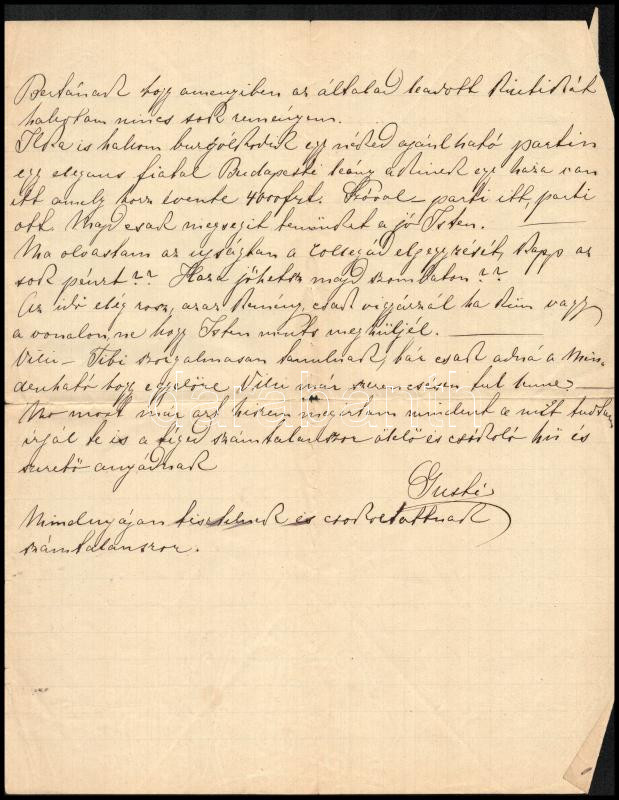 Bertának hogy amenyiben az általad leadott
halgotam nincs sok reményem.
Ilka is halom burgólkodik egy néked ajánlható partin
egy elegans fiatal Budapesti leány akinek egy haza van
itt amely hoz évente 4000frt. Szóval – parti itt, parti
ott. Majd csak megsegit benünket a jó Isten.
Ma olvastam az ujságban a elgegyzését, kapp az
sok pénzt?? Haza jöhetsz majd szombaton??
Az idö elég rosz, azaz kemény, csak vigyázzál ha kün vagy
a vonalon, ne hogy Isten ments meghüljél.
Vilu – Tibi szorgalmasan tanulnak, bár csak adná a Min-
denható hogy egyelöre Vilu már szerencsésen tul lenne
No most már azt hiszem megirtam mindent a mit tudtam
irjál te is a téged számtalanszor ölelö és csókoló hü és
szeretö anyádnak
Gusti
Mindnyájan tisztelnek és csokoltatnak
számtalanszor.
darabanth